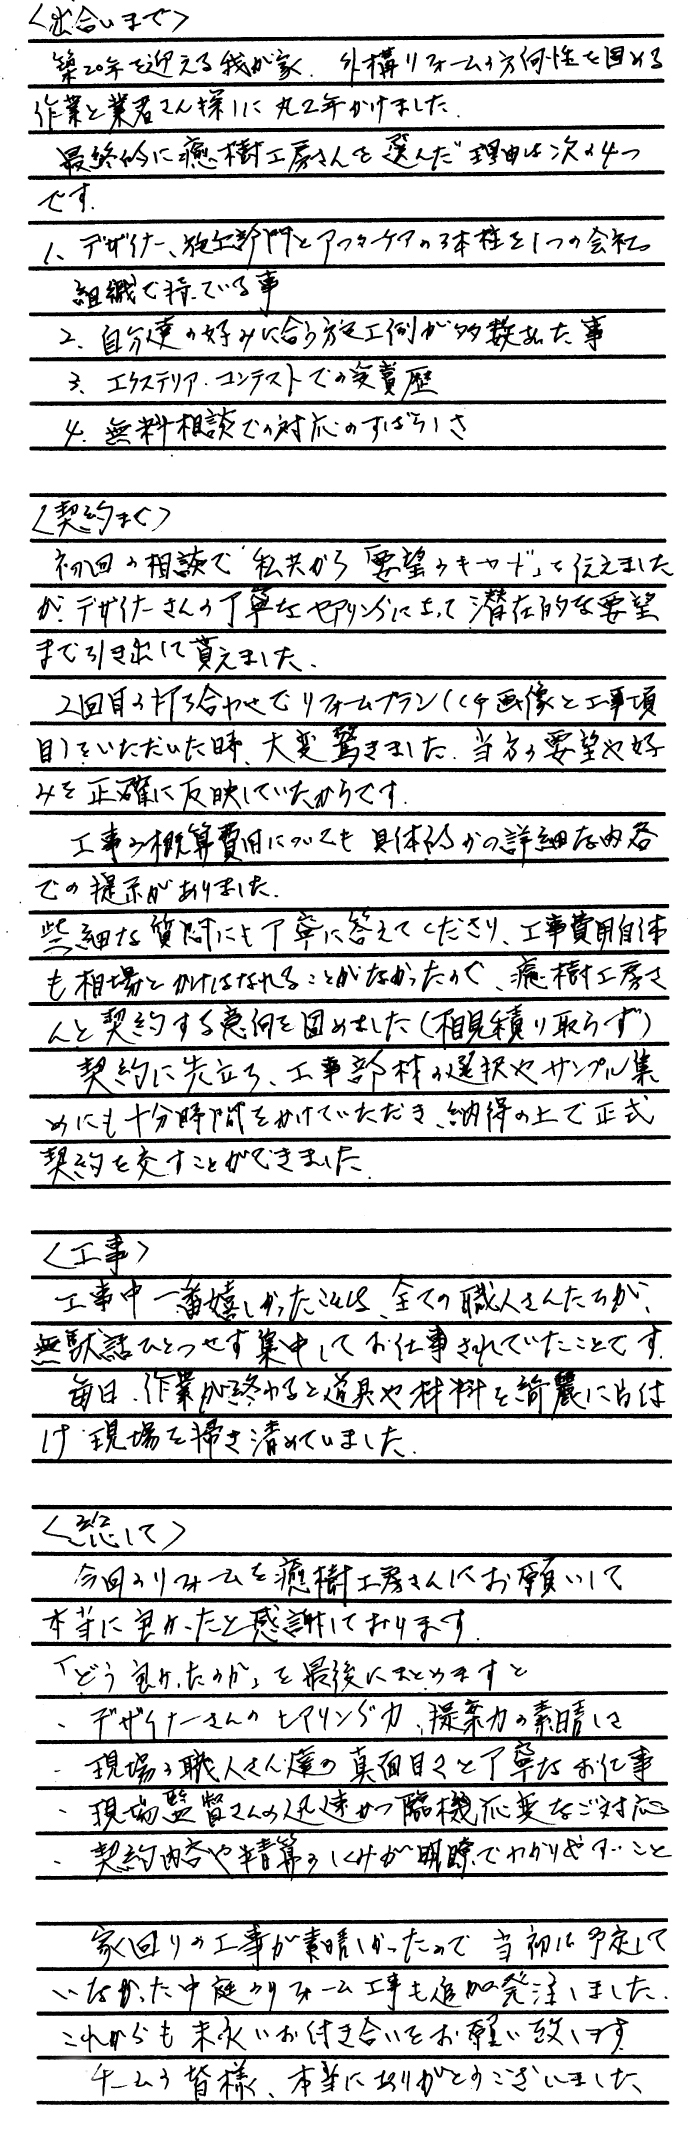 〈出合いまで〉
築20年を迎える我が家、外構リフォームの方向性を固める
作業と業者さん探しに丸2年かけました.
最終的に癒樹工房さんを選んだ理由は次の4つ
です.
1、デザイナー、施工部門とアフターケアの3本柱を1つの会社
組織で持っている事
2、自分達の好みに合う施工例が多数あった事
3、エクステリア・コンテストでの受賞歴
4、無料相談での対応のすばらしさ
〈契約まで〉
初回の相談で私共から「要望のキーワード」を伝えました
が、デザイナーさんの丁寧なヒアリングによって潜在的な要望
まで引き出して貰えました、
2回目の打ち合わせでリフォームプラン(CG画像と工事項
目)をいただいた時、大変驚きました.当方の要望や好
みを正確に反映していたからです.
工事の概算費用についても具体的かつ詳細な内容
での提示がありました.
些細な質問にも丁寧に答えてくださり、工事費用自体
も相場とかけはなれることがなかったので、癒樹工房さ
んと契約する意向を固めました(相見積り取らず)
契約に先立ち、工事部材の選択やサンプル集
めにも十分時間をかけていただき、納得の上で正式
契約を交すことができました.
〈工事〉
工事中一番嬉しかったことは、全ての職人さんたちが、
無駄話ひとつせず集中してお仕事されていたことです.
毎日、作業が終わると道具や材料を綺麗に片付
け現場を掃き清めていました.
〈総じて〉
今回のリフォームを癒樹工房さんにお願いして
本当に良かったと感謝しております.
「どう良かったのか」を最後にまとめますと
・デザイナーさんのヒアリング力、提案力の素晴しさ
・現場の職人さん達の真面目さと丁寧なお仕事
・現場監督さんの迅速かつ臨機応変なご対応
・契約内容や精算のしくみが明瞭でわかりやすいこと
家回りの工事が素晴しかったので当初は予定して
いなかった中庭のリフォーム工事も追加発注しました.
これからも末永いお付き合いをお願い致します
チームの皆様、本当にありがとうございました、